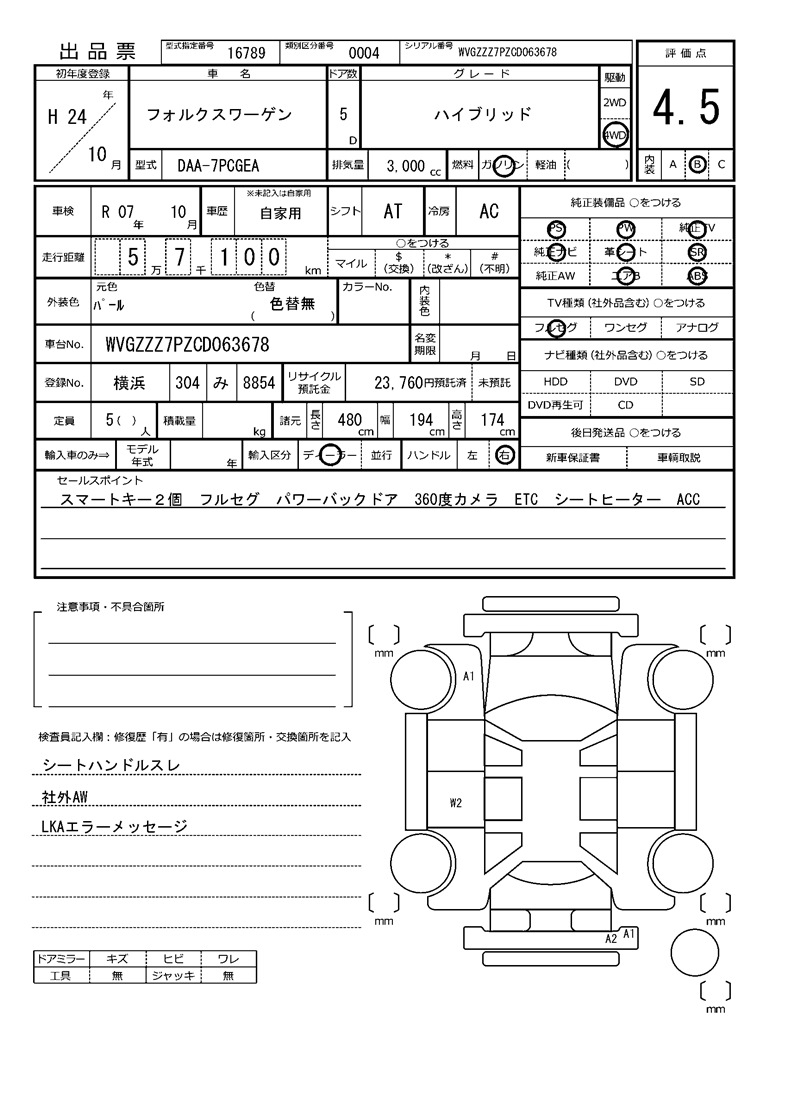 出品票 型式指定番号 16789 類別区分番号 0004 シリアル番号 WVGZZZ7PZCD063678
評価点
4.5
内装 A B C
初年度登録 車名 ドア数 グレード 駆動
H 24 年 10 月 フォルクスワーゲン 5 D ハイブリッド 2WD 4WD
型式 DAA-7PCGEA 排気量 3,000 cc 燃料 ガソリン 軽油 ( )
車検 R 07 年 10 月 車歴 ※未記入は自家用 自家用 シフト AT 冷房 AC
走行距離 5 万 7 千 1 0 0 km
○をつける
マイル $ (交換) * (改ざん) # (不明)
外装色 元色 パール 色替 ( 色替無 ) カラーNo. 内装色
車台No. WVGZZZ7PZCD063678 名変期限 月 日
登録No. 横浜 304 み 8854 リサイクル預託金 23,760円預託済 未預託
定員 5 ( ) 人 積載量 kg 諸元 長さ 480 cm 幅 194 cm 高さ 174 cm
輸入車のみ⇒ モデル年式 年 輸入区分 ディーラー 並行 ハンドル 左 右
純正装備品 ○をつける
PS PW 純正TV
純正ナビ 革シート SR
純正AW エアB ABS
TV種類(社外品含む) ○をつける
フルセグ ワンセグ アナログ
ナビ種類(社外品含む) ○をつける
HDD DVD SD
DVD再生可 CD
後日発送品 ○をつける
新車保証書 車輌取説
セールスポイント
スマートキー2個 フルセグ パワーバックドア 360度カメラ ETC シートヒーター ACC
注意事項・不具合箇所
検査員記入欄：修復歴「有」の場合は修復箇所・交換箇所を記入
シートハンドルスレ
社外AW
LKAエラーメッセージ
ドアミラー キズ ヒビ ワレ
工具 無 ジャッキ 無
mm mm
A1
W2
mm mm
A2 A1
mm